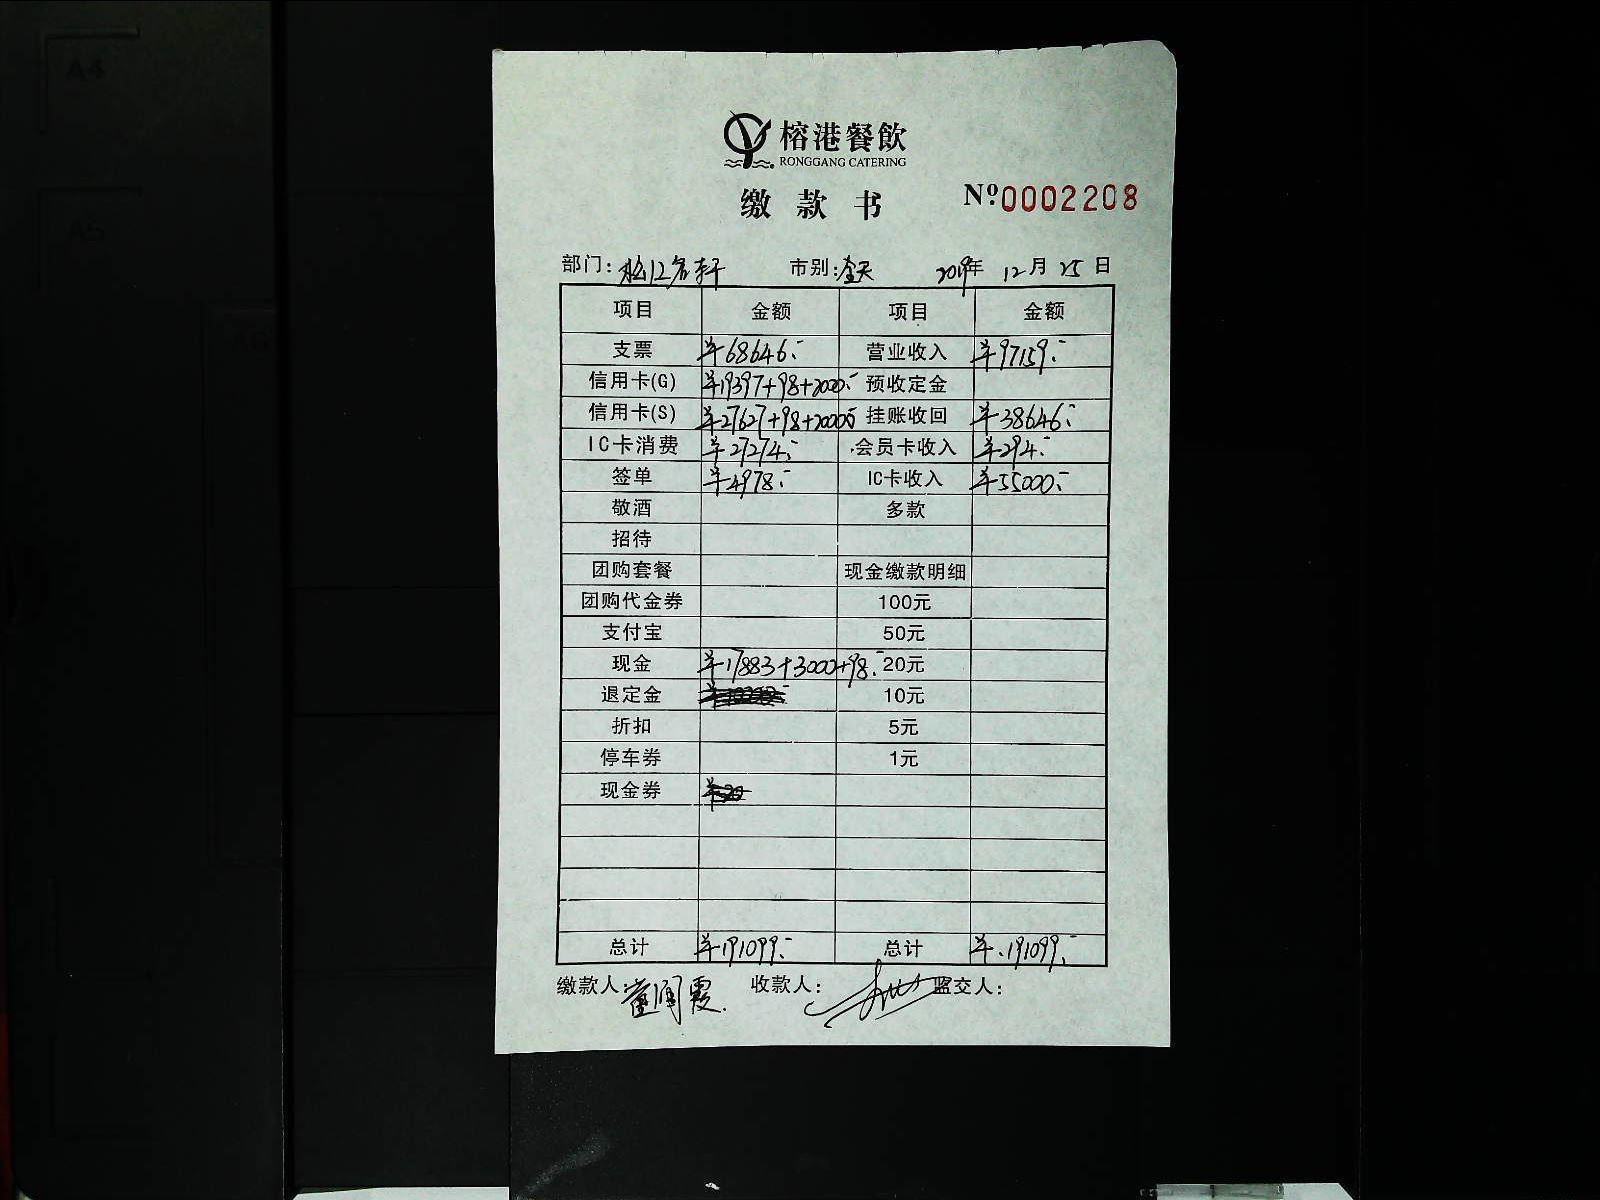 A4
A5
A6
榕港餐飲
RONGGANG CATERING
缴款书 Nº 0002208
部门：松江名轩 市别：全天 2019年 12月 25日
项目 金额 项目 金额
支票 ¥68646.- 营业收入 ¥97159.-
信用卡(G) ¥19397+98+2000.- 预收定金
信用卡(S) ¥27627+98+20000.- 挂账收回 ¥38646.-
IC卡消费 ¥27274.- 会员卡收入 ¥294.-
签单 ¥4978.- IC卡收入 ¥55000.-
敬酒 多款
招待
团购套餐 现金缴款明细
团购代金券 100元
支付宝 50元
现金 ¥17883+3000+98.- 20元
退定金 10元
折扣 5元
停车券 1元
现金券
总计 ¥191099.- 总计 ¥191099.-
缴款人：董润霞 收款人： 监交人：